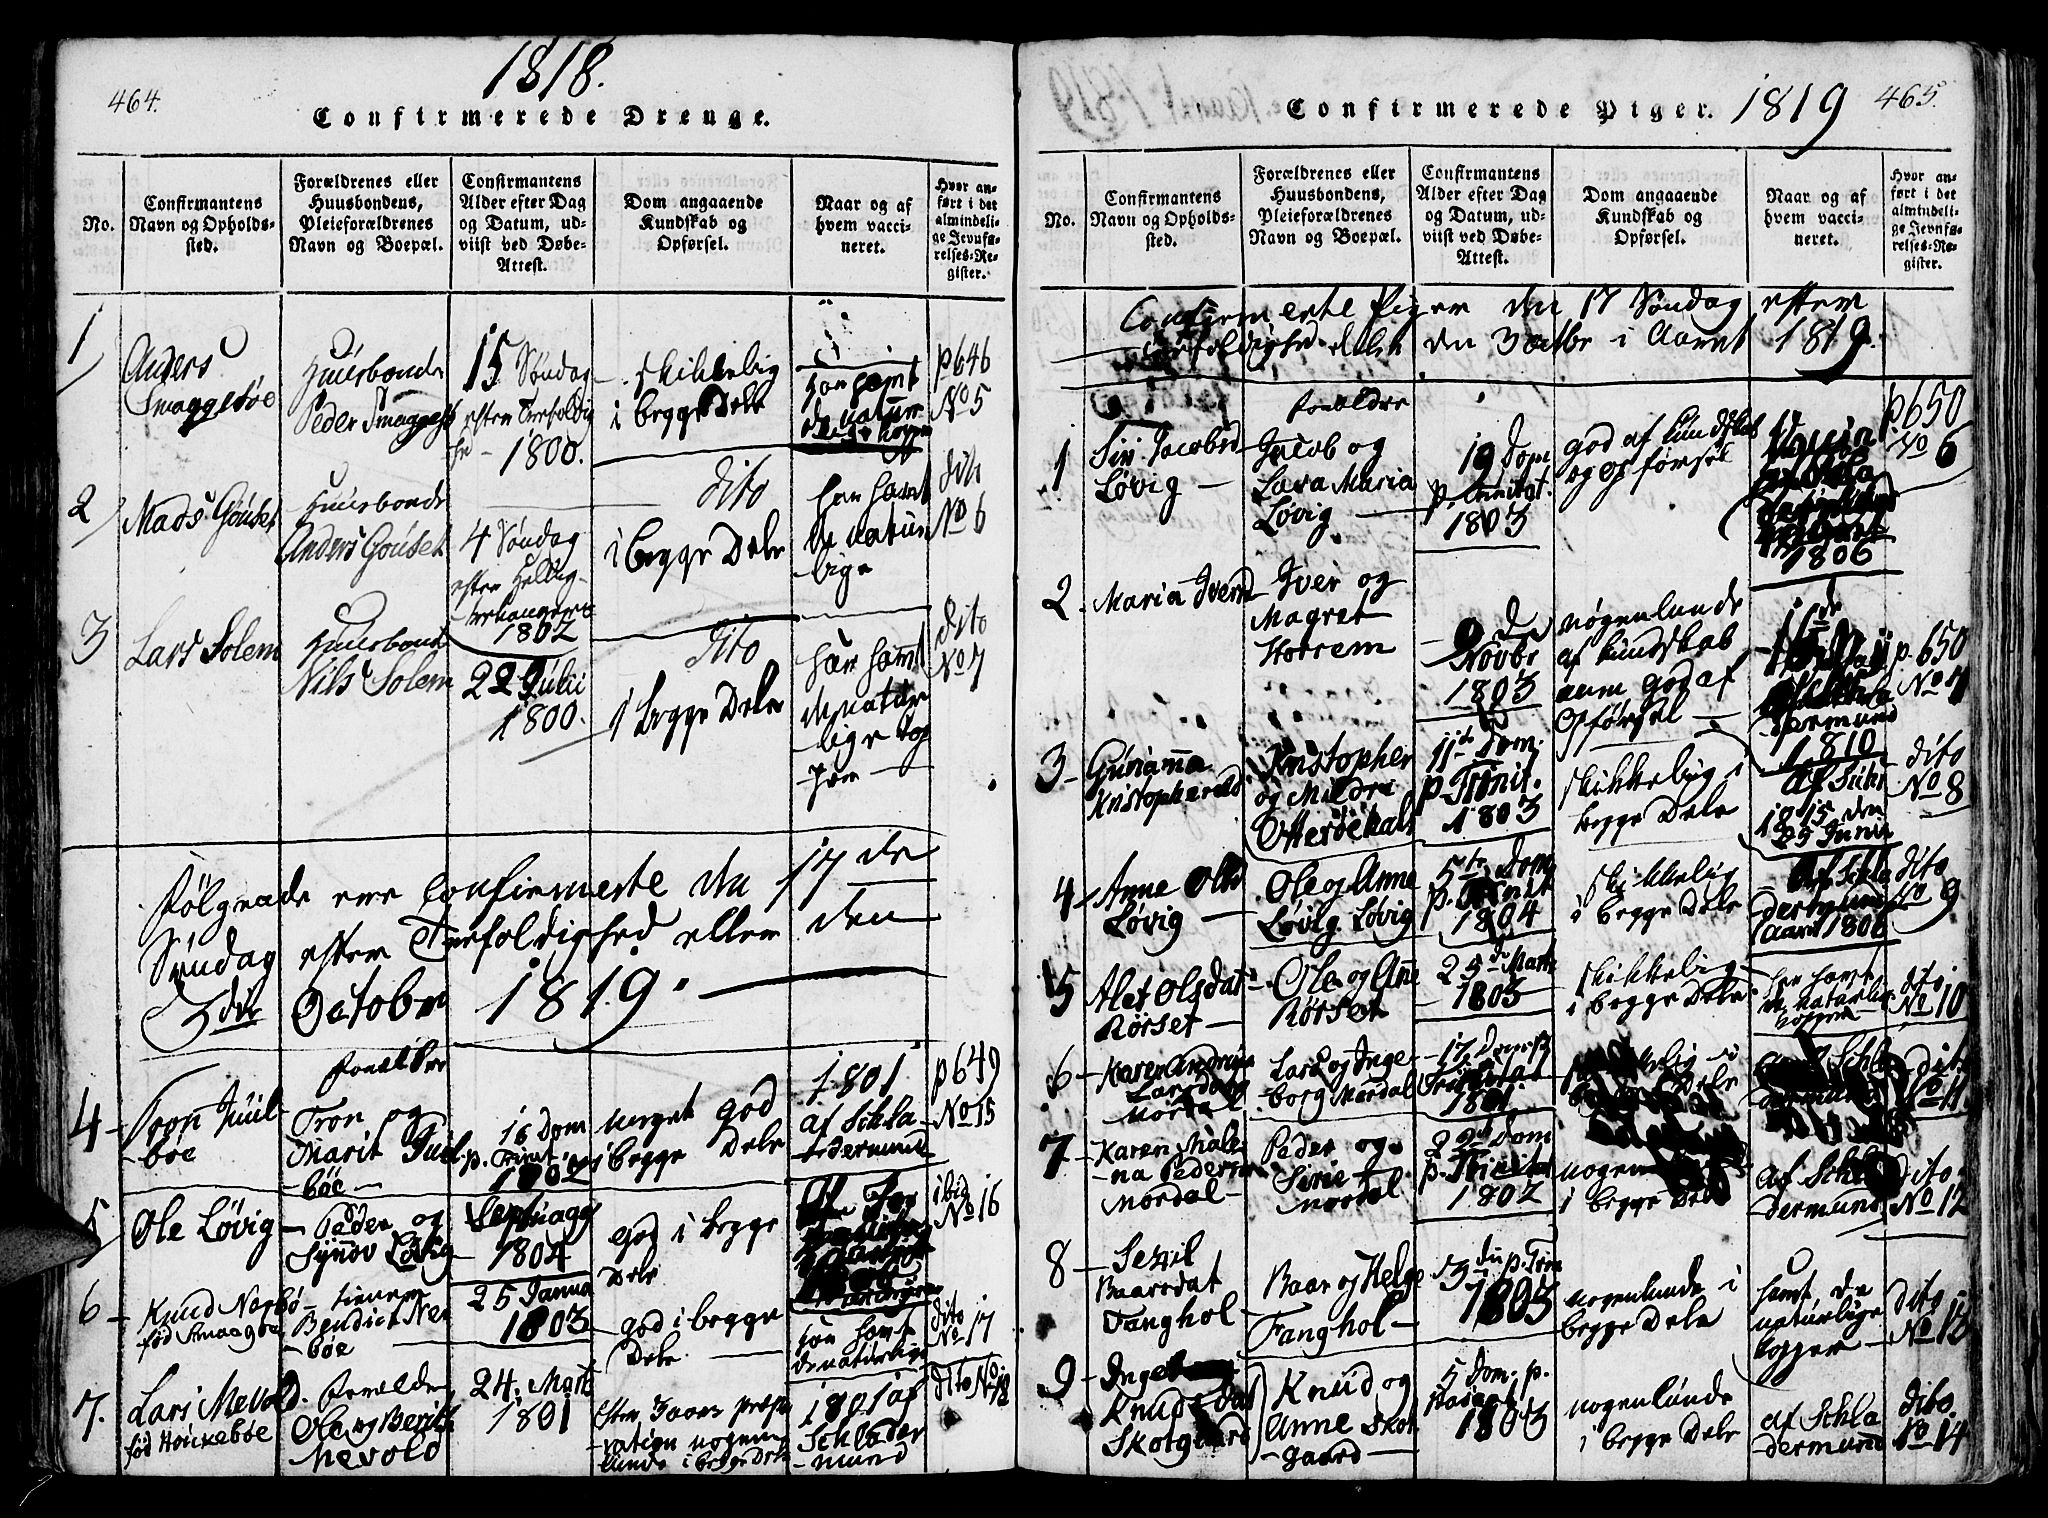 464.
1818.
Confirmerede Drenge.
No.
Confirmantens
Navn og Opholds-
sted.
Forældrenes eller
Huusbondens,
Pleieforældrenes
Navn og Boepæl.
Confirmantens
Alder efter Dag
og Datum, ud-
viist ved Døbe-
Attest.
Dom angaaende
Kundskab og
Opførsel.
Naar og af
hvem vacci-
neret.
Hvor an-
ført i det
almindeli-
ge Jevnfø-
relses-Re-
gister.
1
Anders
Smaggebøe
Huusbonde
Peder
15 Søndag
efter Trefoldig
hed
1800.
skikkelig
i begge Dele
har havt
de natur
p 646
No 5
2
Mads Gouset
Huusbonde
Anders Gouset
4 Søndag
efter
1802
dito
i begge Dele
har havt
de natur
lige
dito
No 6
3
Lars Solem
Huusbonde
Nils Solem
22 Julii
1800.
dito
i begge Dele
har havt
de natur
lige Kop
per
dito
No 7
Følgende ere Confirmerte den 17de
Søndag efter Trefoldighed eller den
3die Octobr 1819.
4
Tron Juul
bøe
Forældre
Tron og
Marit Juul
bøe
16 Dom
p. Trinit
1802
meget god
i begge Dele
1801
af Schla
dermund
p 649
No 15
5
Ole Løvig
Peder og
Synøv Løvig
Septuag
1804
god i begge
Dele
ibid
No 16
6
Knud Nerbø
fød Smaagøe
tiener
Bendict Ner
bøe
25 Janua
1803
god i begge
Dele
har havt
de naturlige
dito
No 17
7.
Lars Mevold
fød Houkebøe
Forældre
Ole og Berit
Mevold
24. Mart
1801
Efter 3 Aars præpa
ration nogen
lunde i begge Dele
1801 af
Schlader
mund
dito No 18
465.
Confirmerede Piger. 1819
No.
Confirmantens
Navn og Opholds-
sted.
Forældrenes eller
Huusbondens,
Pleieforældrenes
Navn og Boepæl.
Confirmantens
Alder efter Dag
og Datum, ud-
viist ved Døbe-
Attest.
Dom angaaende
Kundskab og
Opførsel.
Naar og af
hvem vacci-
neret.
Hvor an-
ført i det
almindeli-
ge Jevnfø-
relses-Re-
gister.
Confirmerte Piger den 17 Søndag efter
Trefoldighed eller den 3 octbr i Aaret 1819.
1
Siri Jacobsd
Løvig
Forældre
Jacob og
Lava Maria
Løvig
19 Dom
p. Trinit.
1803
god af Kundskab
og opførsel
1806
p 650
No 6
2.
Maria Iversd
Iver og
Magret
Horrem
9 d
Novbr
1803
nogenlunde
af Kundskab
men god af
Opførsel
dermund
1810
p. 650
No 7
3
Gurianna
Kristophersd
Kristopher
og Mildri
11te Dom.
p. Trinit.
1803
skikkelig i
begge Dele
1815 den
25 Junii
dito
No 8
4
Anne Olsd
Løvig
Ole og Anne
Løvig Løvig
5te Dom
p. Trinit
1804
skikkelig
i begge Dele
af Schla
dermund
Aaret 1806
dito
No 9
5
Alet Olsdat
Rørset
Ole og Anne
Rørset
25de Marts
1803
skikkelig
i begge Dele
har havt
de naturlige
kopper
dito
No 10
6
Karen Andrina
Larsdatt
Mordal
Lars og Inge-
borg Mordal
17 Dom p
1801
i
begge Dele
Schla
dermund
dito
No 11
7
Karen Male
na Pedersd
Mordal
Peder og
Sirie
Mordal
22de Dom
p. Trinita
1802
nogen
i begge Dele
af Schla
dermund
dito
No 12
8
Sezil
Baarsdat
Fanghol
Baar og Helge
Fanghol
3die p. Trin
1803
nogenlunde i
begge Dele
havt de
naturlige
kopper
dito
No 13
9
Knudsdat
Skotgaard
Knud og
Anne Skot
gaard
5 Dom. p.
1803
nogenlunde
i begge Dele
af Schla
dermund
dito
No 14